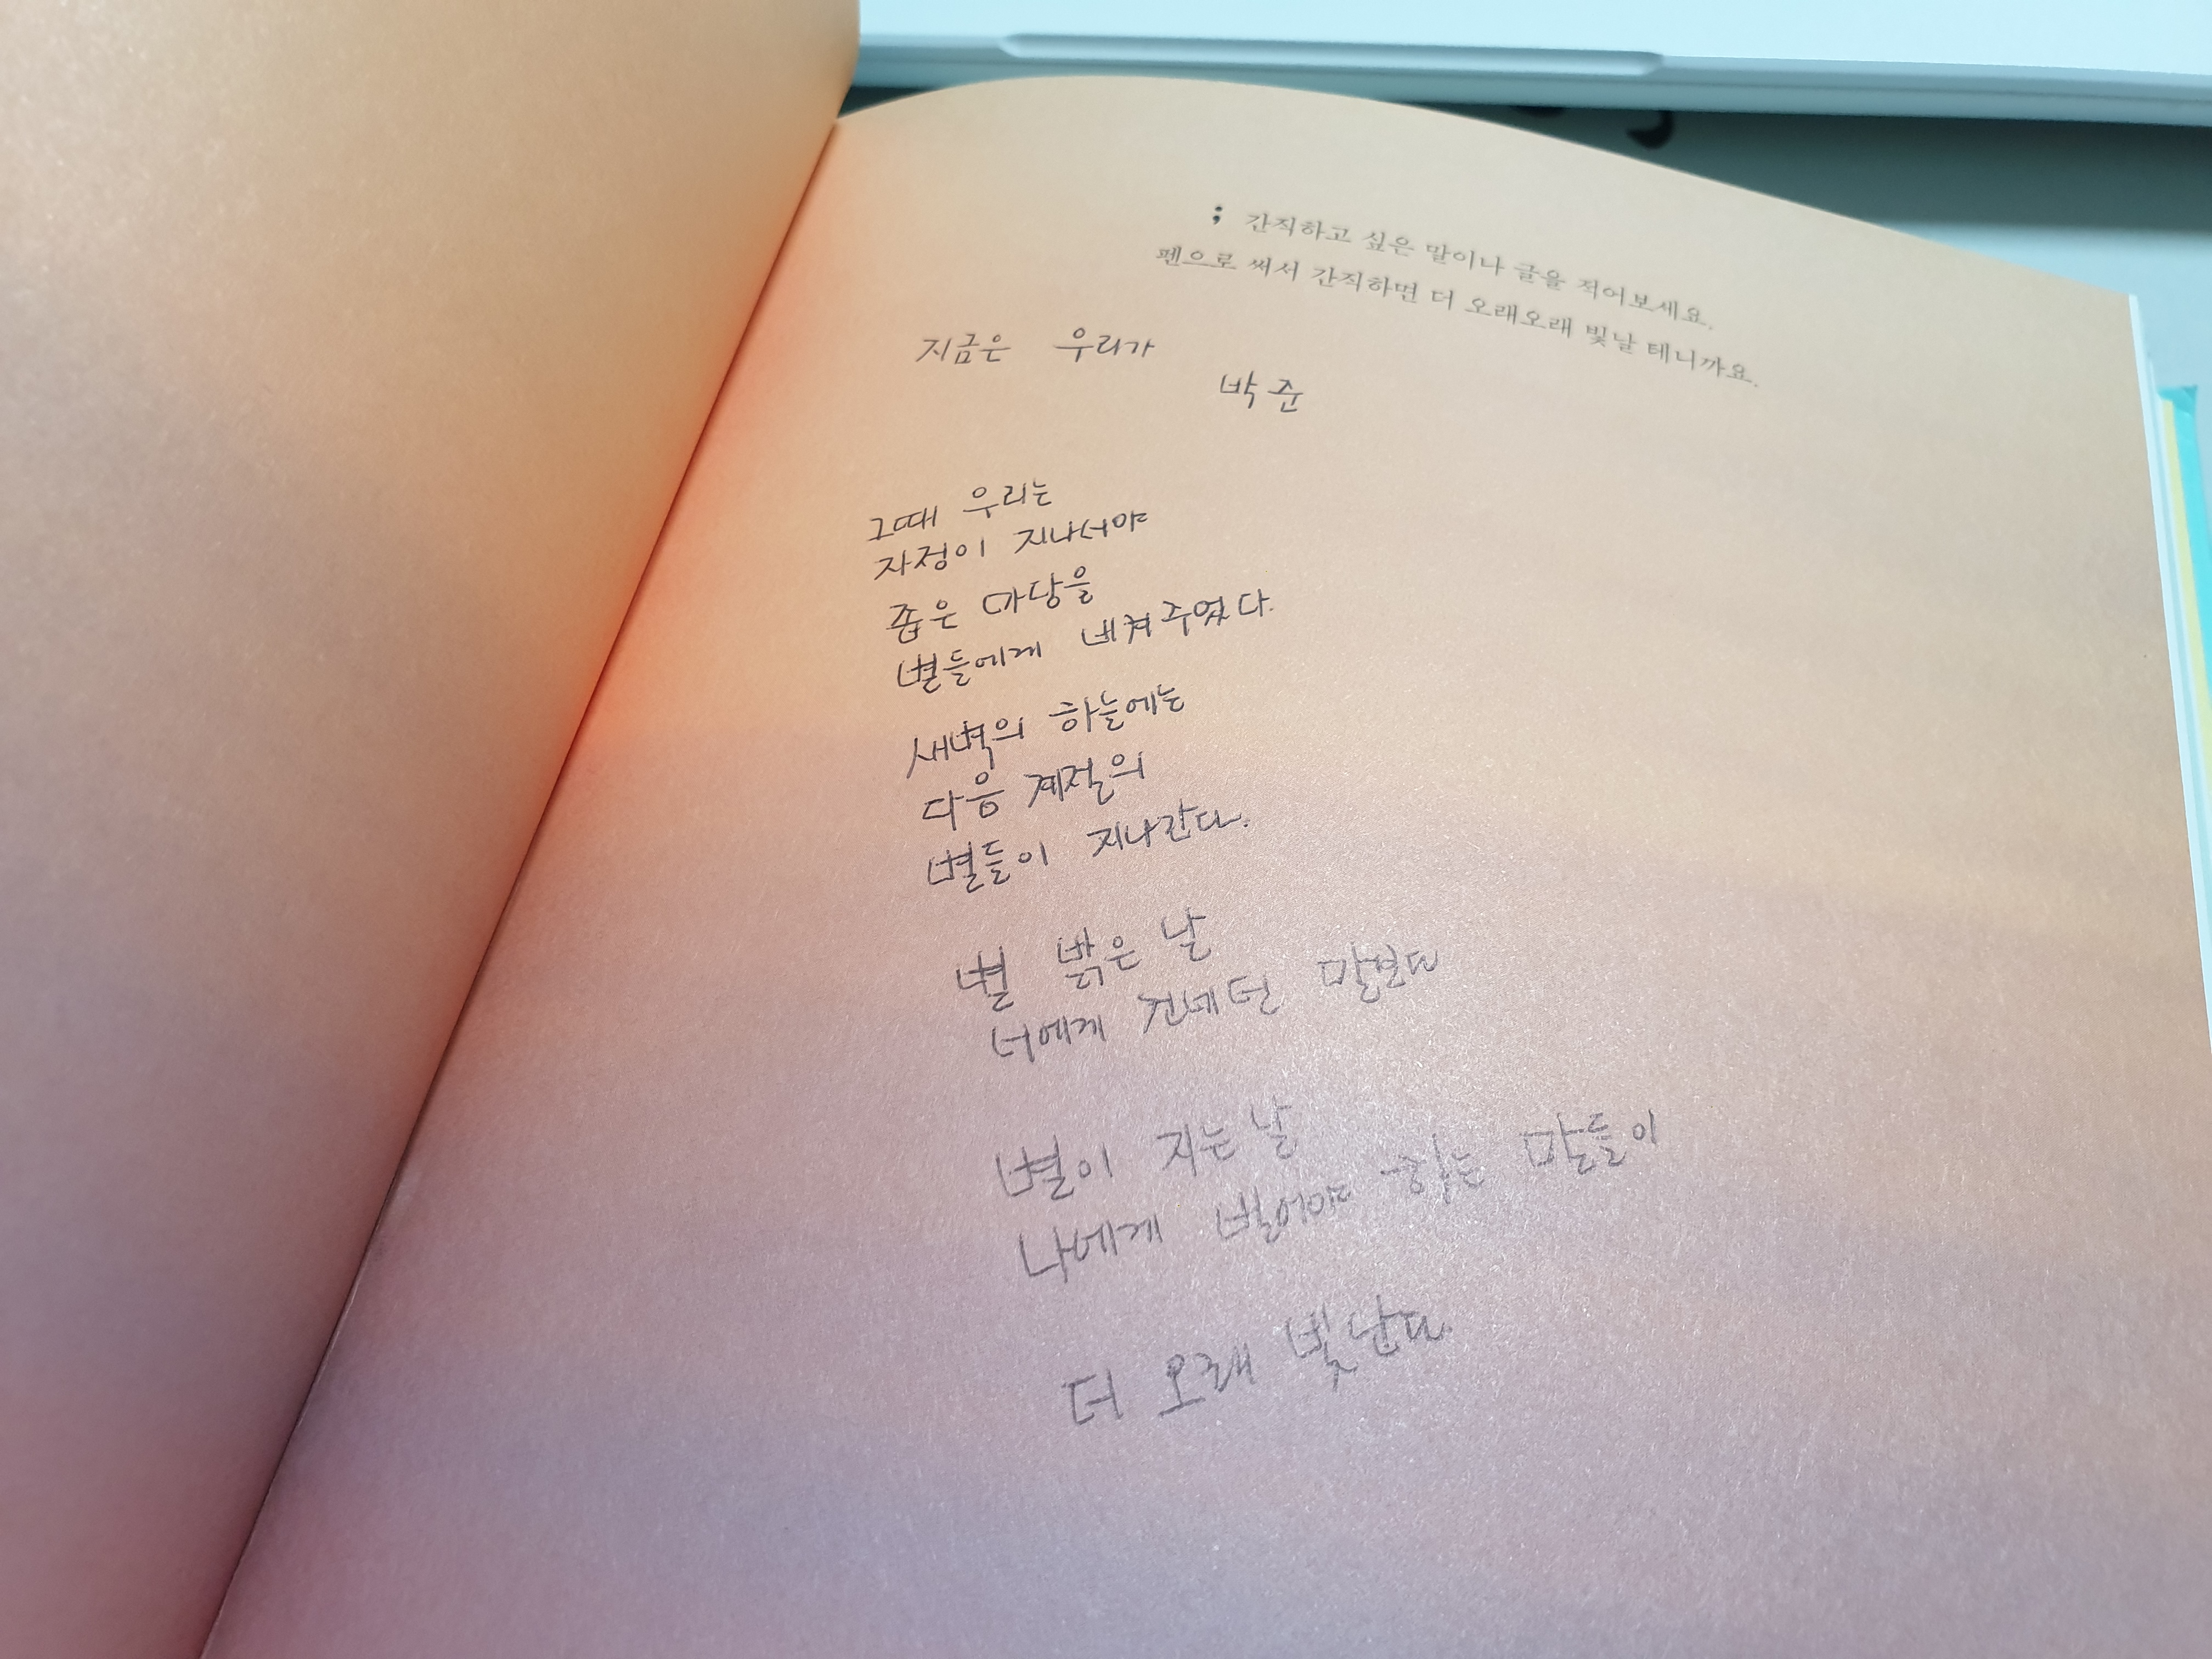 ; 간직하고 싶은 말이나 글을 적어보세요.
펜으로 써서 간직하면 더 오래오래 빛날 테니까요.
지금은 우리가
박준
그때 우리는
자정이 지나서야
좁은 마당을
별들에게 비켜주었다.
새벽의 하늘에는
다음 계절의
별들이 지나간다.
별 밝은 날
너에게 건네던 말보다
별이 지는 날
나에게 빌어야 하는 말들이
더 오래 빛난다.